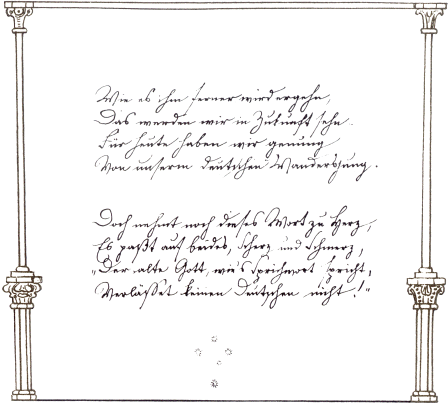 Wie es ihm ferner wird ergehn,
Das werden wir in Zukunft sehn.
Für heute haben wir genung
Von unserm deutschen Wandersgung.
Doch nehmt noch dieses Wort zu Herz,
Es paßt auf beides, Scherz und Schmerz,
„Der alte Gott, wie's Sprichwort spricht,
Verläßet keinen Deutschen nicht!“